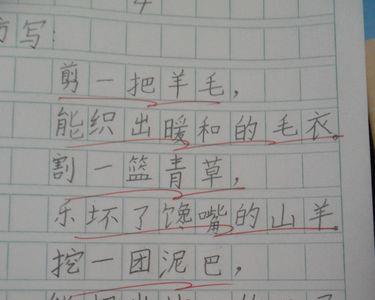 仿写：
剪一把羊毛，
能织出暖和的毛衣。
割一篮青草，
乐坏了馋嘴的山羊。
挖一团泥巴，